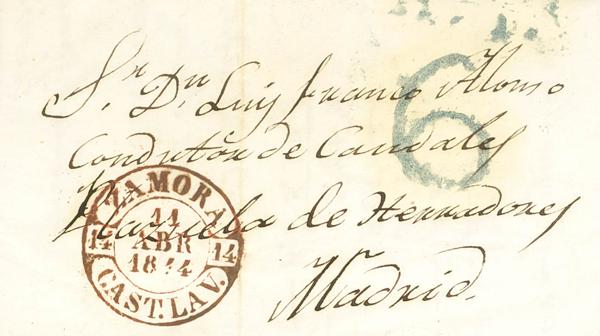 Sr. Dn. Luis Franco Alonso
6
Condutór de Caudales
Plazuela de Herradores
Madrid.
ZAMORA
14
11
ABR
1844
14
CAST. LA V.